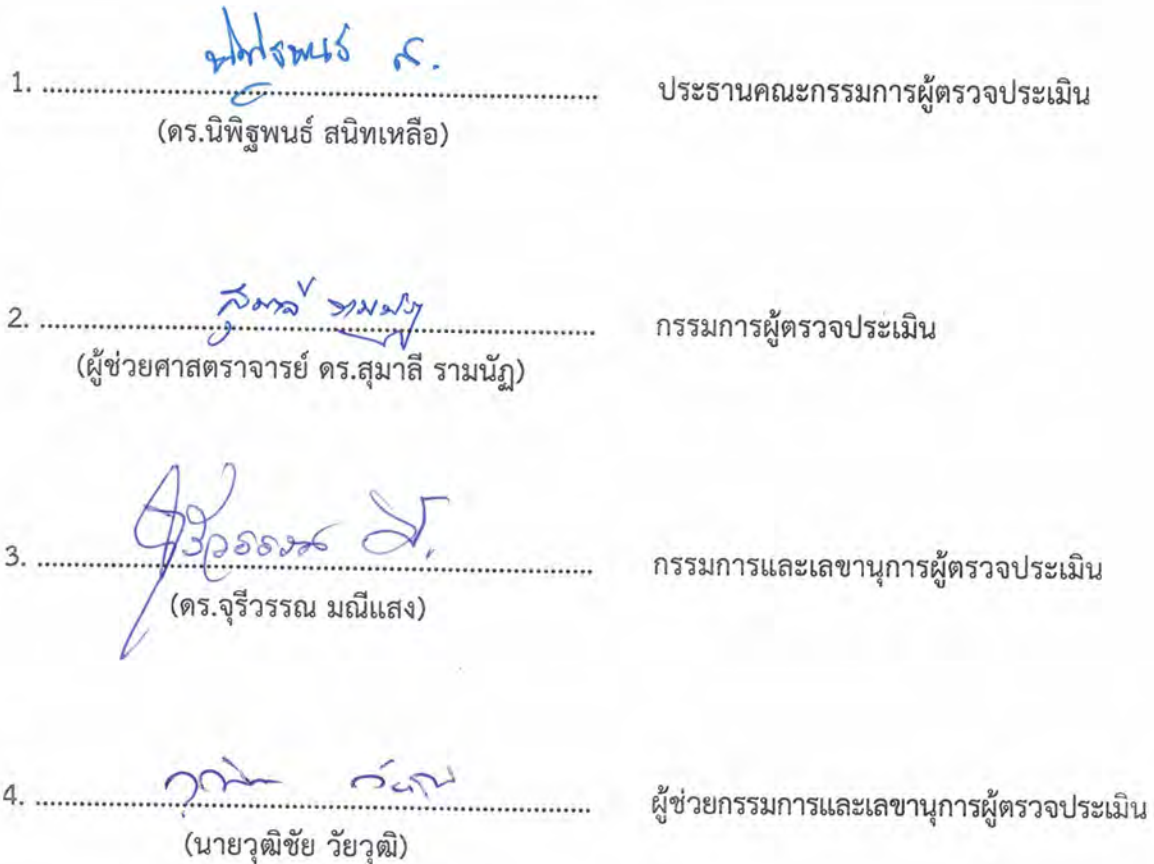 นิพิฐพนธ์ ส.
1. ........................................ ประธานคณะกรรมการผู้ตรวจประเมิน
(ดร.นิพิฐพนธ์ สนิทเหลือ)
สุมาลี รามนัฏ
2. ........................................ กรรมการผู้ตรวจประเมิน
(ผู้ช่วยศาสตราจารย์ ดร.สุมาลี รามนัฏ)
จุรีวรรณ ม.
3. ........................................ กรรมการและเลขานุการผู้ตรวจประเมิน
(ดร.จุรีวรรณ มณีแสง)
4. ........................................ ผู้ช่วยกรรมการและเลขานุการผู้ตรวจประเมิน
(นายวุฒิชัย วัยวุฒิ)